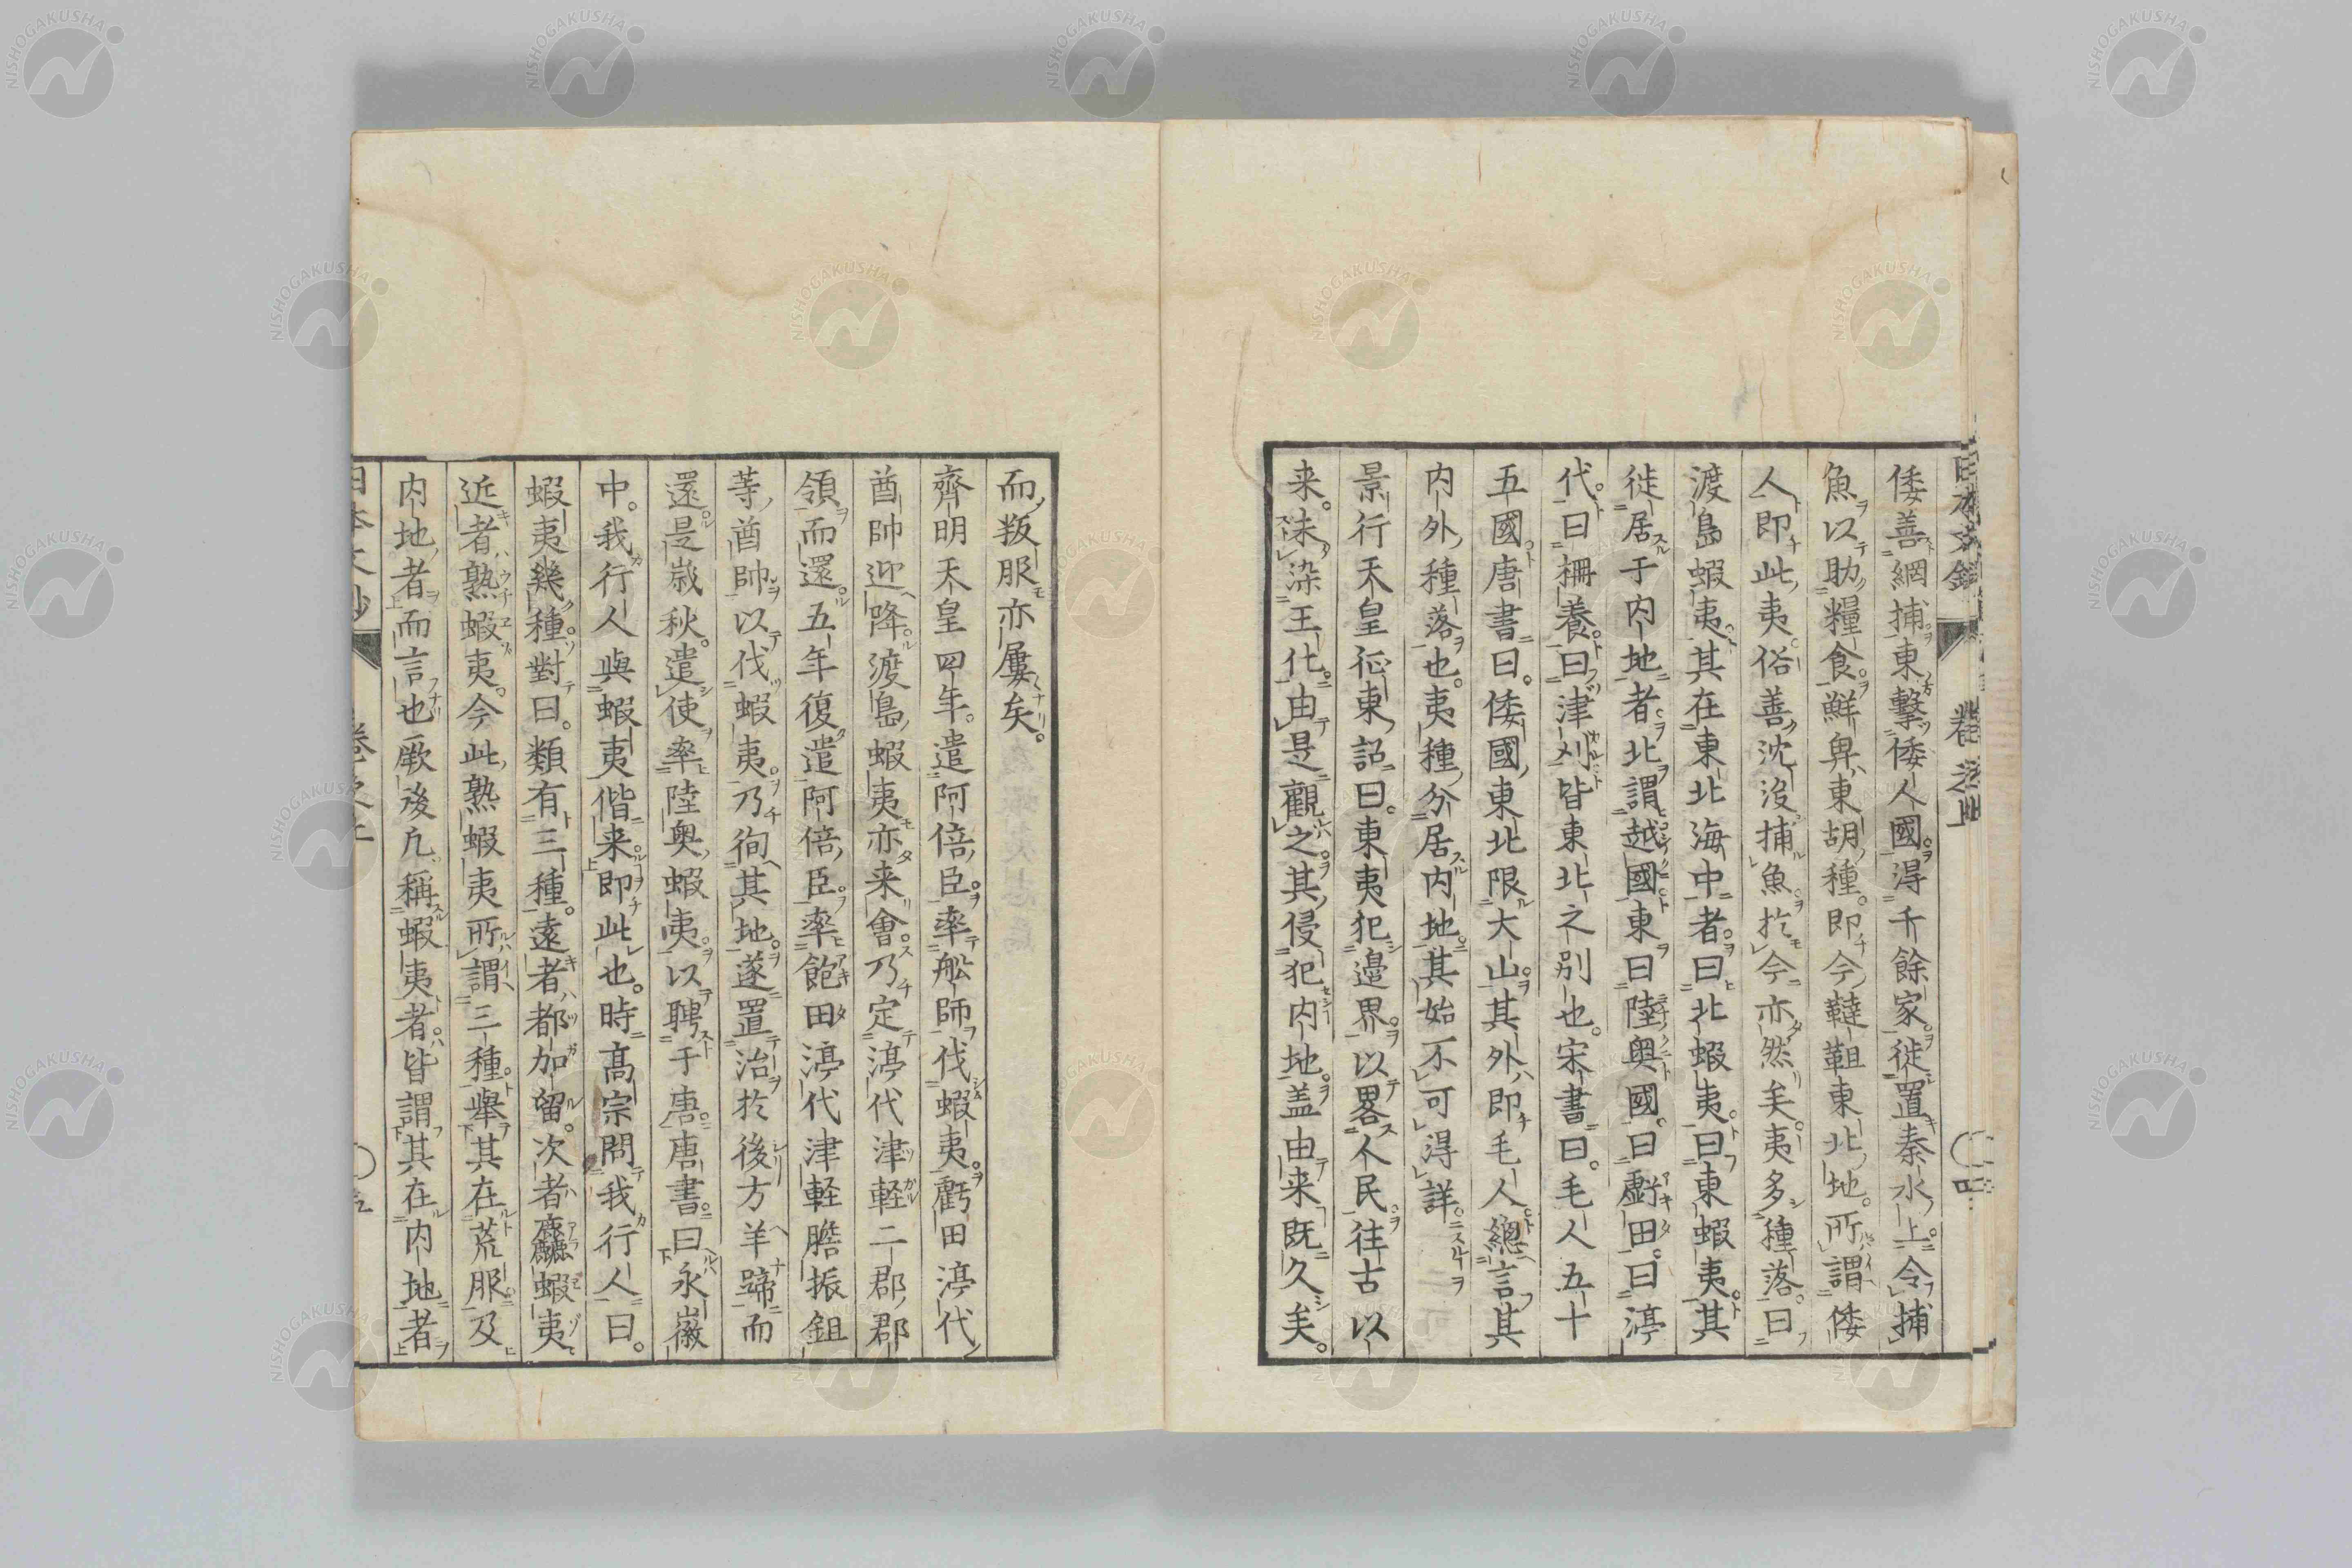 倭善網捕東撃倭人國得千餘家徙置秦水上令捕
魚以助糧食鮮卑東胡種即今韃靼東北地所謂倭
人即此夷俗善沈没捕魚於今亦然矣夷多種落曰
渡島蝦夷其在東北海中者曰北蝦夷曰東蝦夷其
徙居于内地者北謂越國東曰陸奥國曰齶田曰渟
代曰柵養曰津刈皆東北之別也宋書曰毛人五十
五國唐書曰倭國東北限大山其外即毛人總言其
内外種落也夷種分居内地其始不可得詳
景行天皇征東詔曰東夷犯邊界以畧人民往古以
来未染王化由是觀之其侵犯内地盖由来既久矣
而叛服亦屢矣
齊明天皇四年遣阿倍臣率舩師伐蝦夷齶田渟代
酋帥迎降渡島蝦夷亦来會乃定渟代津軽二郡郡
領而還五年復遣阿倍臣率飽田渟代津軽膽振鉏
等酋帥以伐蝦夷乃徇其地遂置治於後方羊蹄而
還是歳秋遣使率陸奥蝦夷以聘于唐唐書曰永徽
中我行人與蝦夷偕来即此也時髙宗問我行人曰
蝦夷幾種對曰類有三種遠者都加留次者麤蝦夷
近者熟蝦夷今此熟蝦夷所謂三種舉其在荒服及
内地者而言也厥後凡稱蝦夷者皆謂其在内地者
NISHOGAKUSHA